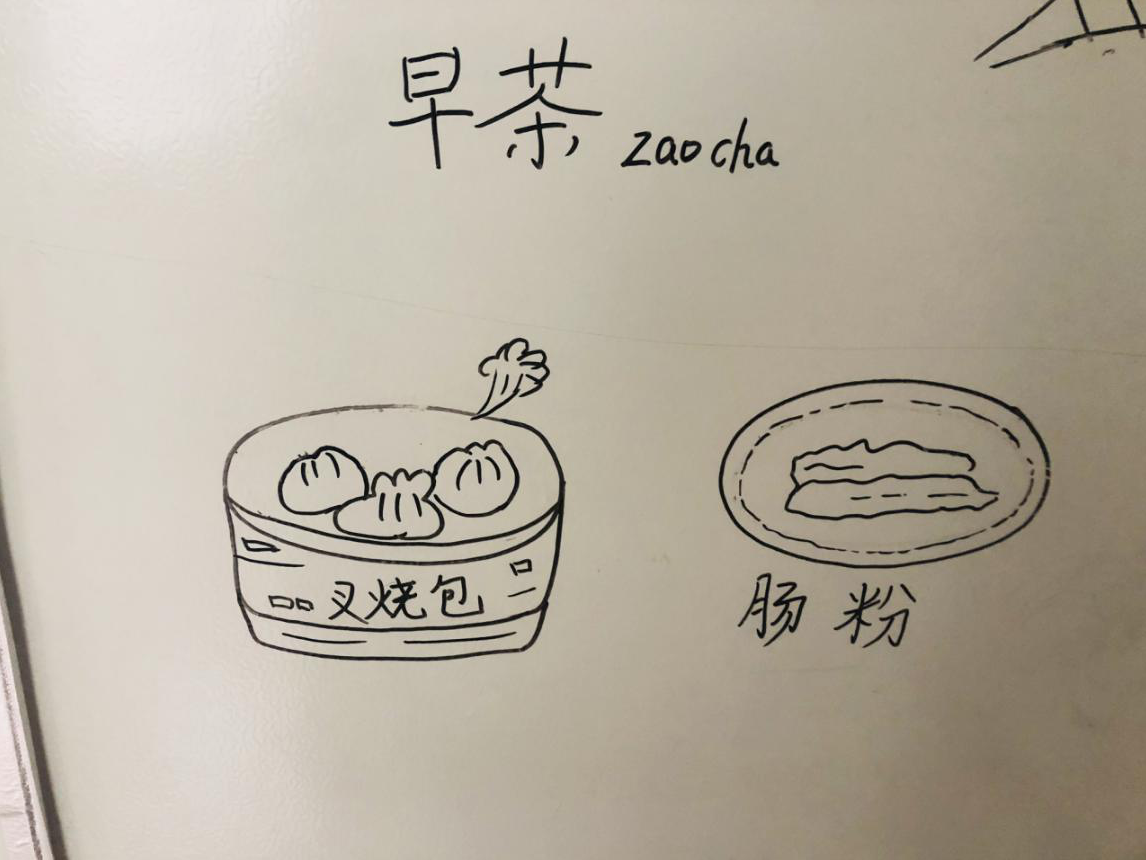 早茶 zao cha
叉烧包
肠粉